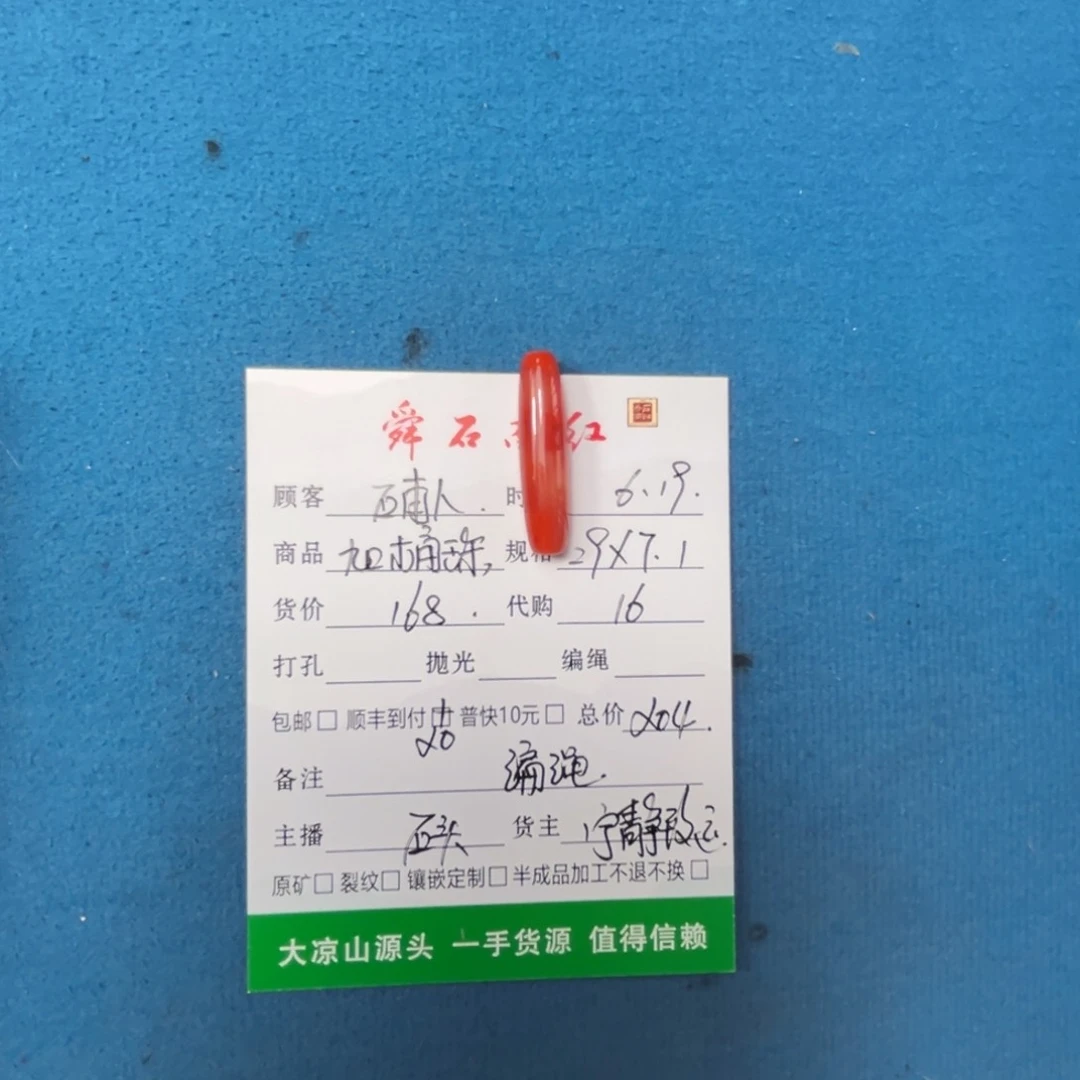 舜石 红
顾客 石甫人. 时 6.19.
商品 桶珠, 规格 29X7.1
货价 168. 代购 16
打孔 抛光 编绳
包邮□ 顺丰到付□ 普快10元□ 总价 204.
20
备注 编绳.
主播 石头 货主 宁静致远.
原矿□ 裂纹□ 镶嵌定制□ 半成品加工不退不换□
大凉山源头 一手货源 值得信赖